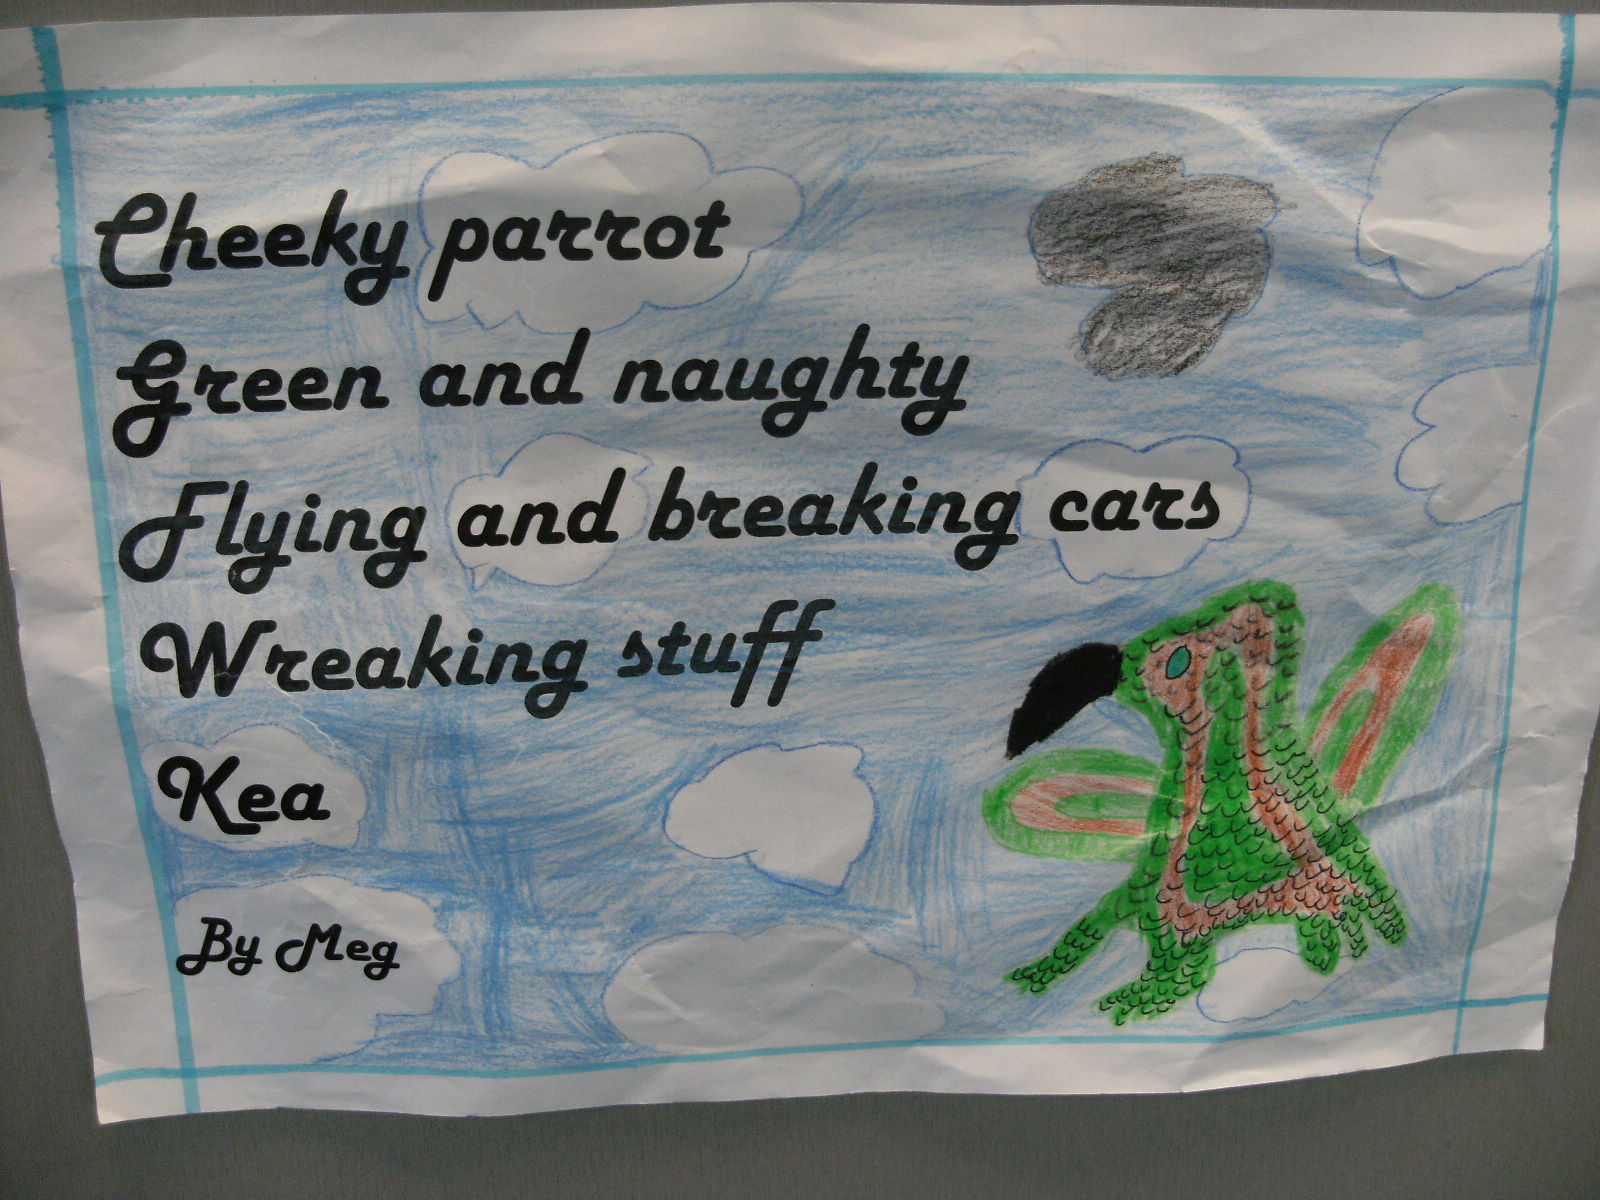 Cheeky parrot
Green and naughty
Flying and breaking cars
Wreaking stuff
Kea
By Meg